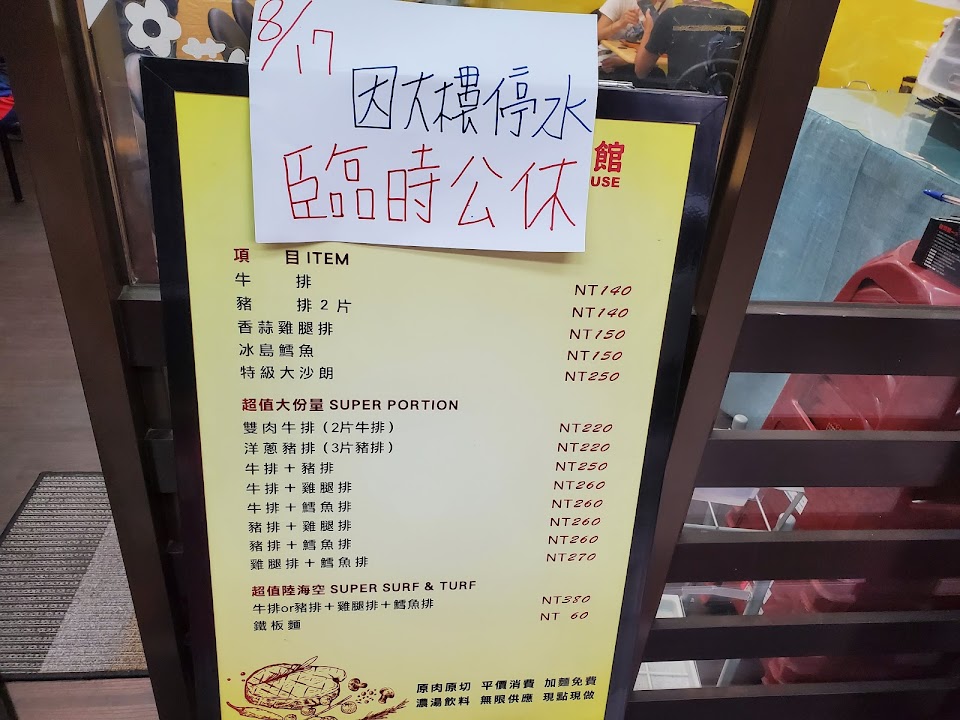 8/17
因大樓停水
臨時公休
館
USE
項 目 ITEM
牛 排 NT140
豬 排 2 片 NT140
香蒜雞腿排 NT150
冰島鱈魚 NT150
特級大沙朗 NT250
超值大份量 SUPER PORTION
雙肉牛排(2片牛排) NT220
洋蔥豬排(3片豬排) NT220
牛排+豬排 NT250
牛排+雞腿排 NT260
牛排+鱈魚排 NT260
豬排+雞腿排 NT260
豬排+鱈魚排 NT260
雞腿排+鱈魚排 NT270
超值陸海空 SUPER SURF & TURF
牛排or豬排+雞腿排+鱈魚排 NT380
鐵板麵 NT 60
原肉原切 平價消費 加麵免費
濃湯飲料 無限供應 現點現做